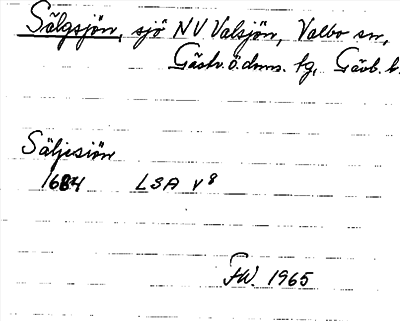 Sälgsjön, sjö NV Valsjön, Valbo sn,
Gästr. ö. dms. tg, Gävb. l.
Säljesiön
1684 LSA v8
FW. 1965